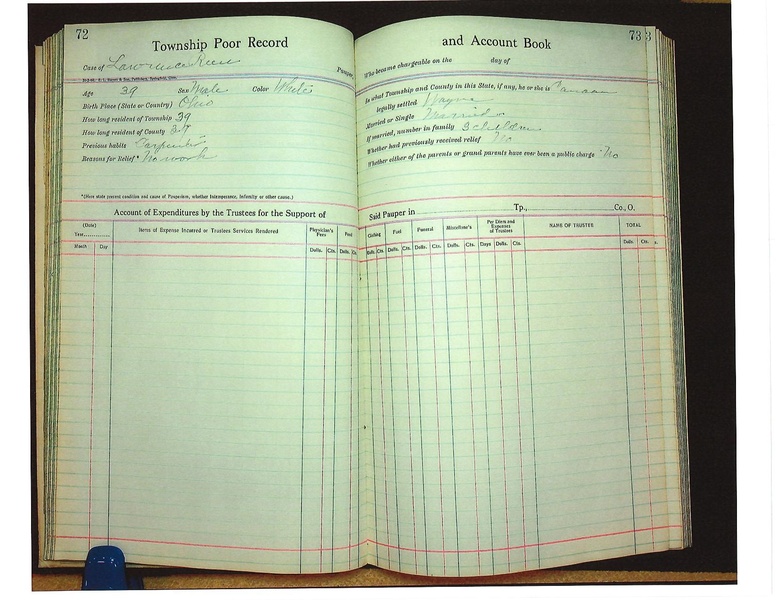 72
Township Poor Record
Case of Lawrence Pauper,
Age 39 Sex Male Color White
Birth Place (State or Country) Ohio
How long resident of Township 39
How long resident of County 37
Previous habits Carpenter
Reasons for Relief* No work
*(Here state present condition and cause of Pauperism, whether Intemperance, Infirmity or other cause.)
Account of Expenditures by the Trustees for the Support of
(Date)
Year
Month Day
Items of Expense Incurred or Trustees Services Rendered
Physician's Fees Food
Dolls. Cts. Dolls. Cts.
73 3
and Account Book
Who became chargeable on the day of
In what Township and County in this State, if any, he or she is Canaan
legally settled Wayne
Married or Single Married
If married, number in family 3 children
Whether had previously received relief No
Whether either of the parents or grand parents have ever been a public charge No
Said Pauper in Tp., Co., O.
Clothing Fuel Funeral Miscellan's Per Diem and Expenses of Trustees NAME OF TRUSTEE TOTAL
Dolls. Cts. Dolls. Cts. Dolls. Cts. Dolls. Cts. Days Dolls. Cts. Dolls. Cts.